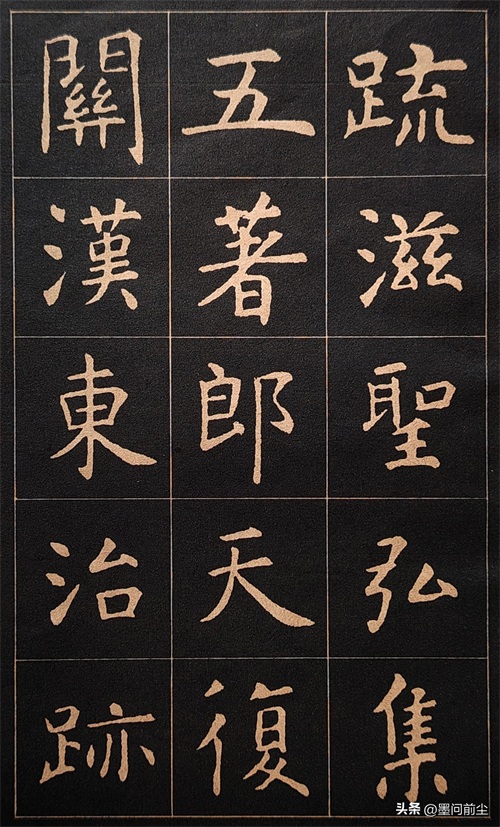 疏滋聖弘集
五著郎天復
關漢東治跡
头条@墨问前尘